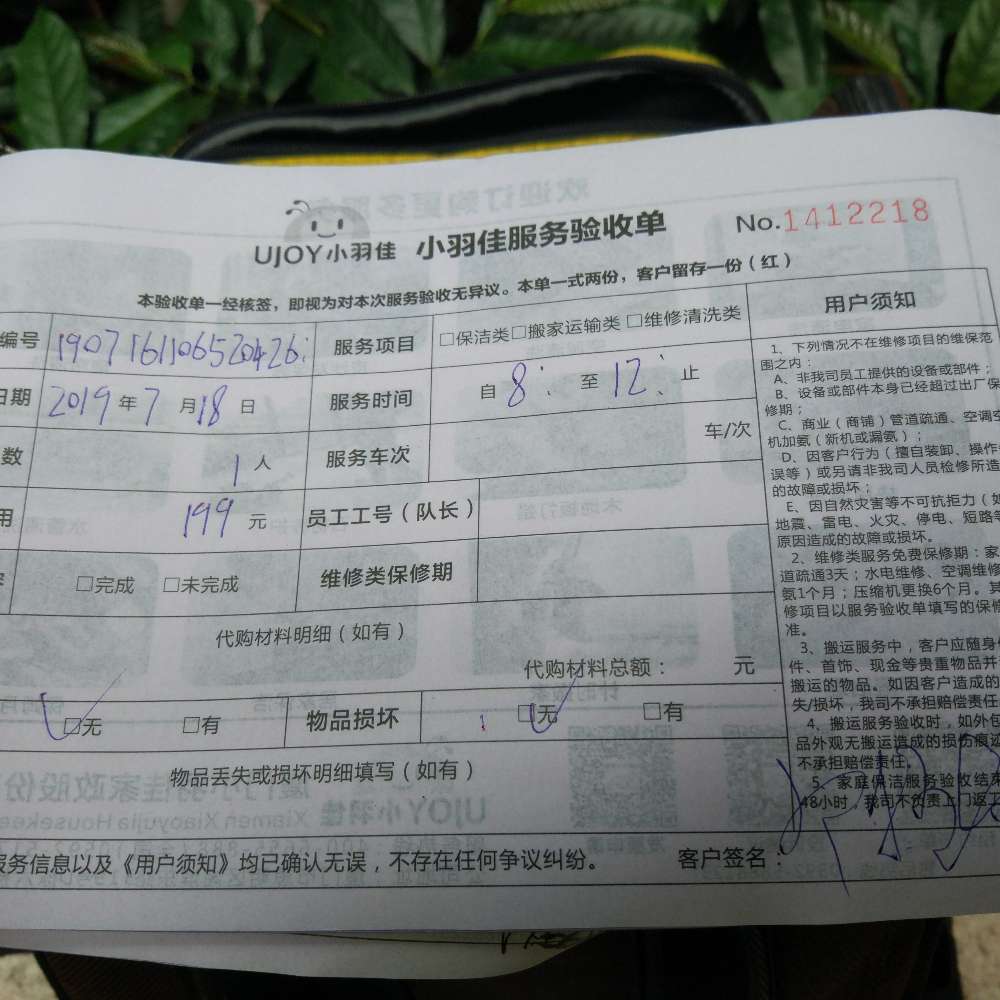 UJOY小羽佳 小羽佳服务验收单 No.1412218
本验收单一经核签，即视为对本次服务验收无异议。本单一式两份，客户留存一份（红）
编号 1907161106520426 服务项目 □保洁类□搬家运输类□维修清洗类
日期 2019年7月18日 服务时间 自8: 至12: 止
数 1人 服务车次 车/次
用 199元 员工工号（队长）
□完成 □未完成 维修类保修期
代购材料明细（如有）
代购材料总额： 元
□无 □有 物品损坏 □无 □有
物品丢失或损坏明细填写（如有）
服务信息以及《用户须知》均已确认无误，不存在任何争议纠纷。 客户签名：
用户须知
1、下列情况不在维修项目的维保范
围之内：
A、非我司员工提供的设备或部件；
B、设备或部件本身已经超过出厂保
修期；
C、商业（商铺）管道疏通、空调空
机加氨（新机或漏氨）；
D、因客户行为（擅自装卸、操作
误等）或另请非我司人员检修所造
的故障或损坏；
E、因自然灾害等不可抗拒力（如
地震、雷电、火灾、停电、短路等
原因造成的故障或损坏。
2、维修类服务免费保修期：家
道疏通3天；水电维修、空调维修
氨1个月；压缩机更换6个月。其
修项目以服务验收单填写的保修
准。
3、搬运服务中，客户应随身
件、首饰、现金等贵重物品并
搬运的物品。如因客户造成的
失/损坏，我司不承担赔偿责任
4、搬运服务验收时，如外包
品外观无搬运造成的损伤痕迹
不承担赔偿责任。
5、家庭保洁服务验收结束
48小时，我司不负责上门返工